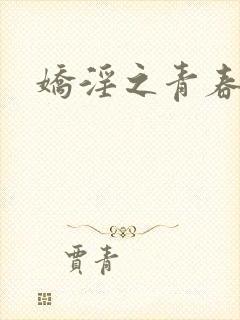 嬌淫之青春
賈青